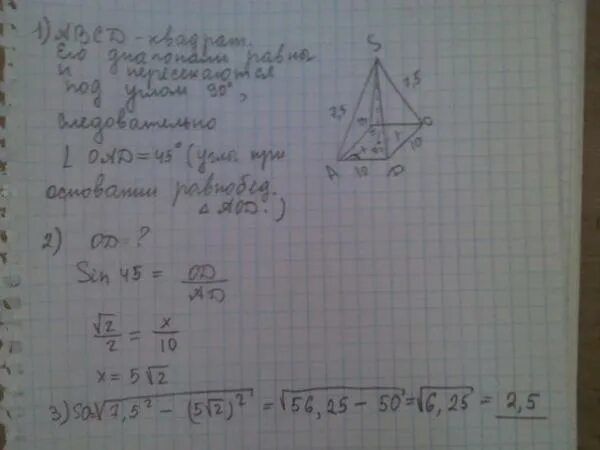 1) ABCD - квадрат.
Его диагонали равны
и пересекаются
под углом 90°,
следовательно
∠ OAD = 45° (углы при
основании равнобед.
△ AOD.)
S
7,5
7,5
A
10
D
10
2) OD = ?
Sin 45 = OD/AD
√2/2 = x/10
x = 5√2
3) SO = √7,5² - (5√2)² = √56,25 - 50 = √6,25 = 2,5